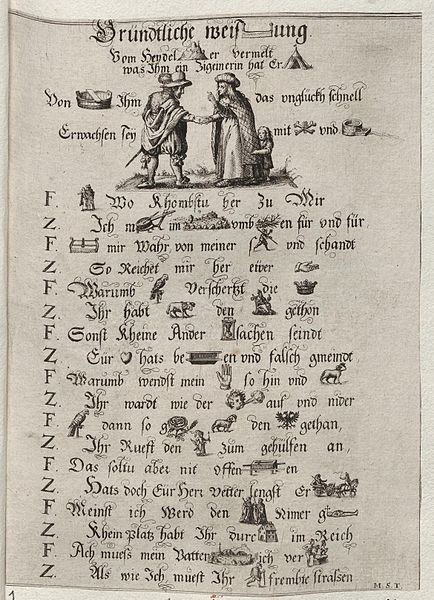 Gründtliche weis ung.
Vom Heydel er vermelt
was Ihm ein Zigeinerin hat Er
Von Ihm das vnglückh schnell
Erwachsen sey mit vnd
F. Wo Khombstu her Zu Mir
Z. Ich m im vmb en für vnd für,
F. mir Wahr von meiner vnd schandt
Z. So Reichet mir her eiver
F. Warumb Verschertzt die
Z. Ihr habt den gethon
F. Sonst Kheine Ander sachen seindt
Z. Eur hats be en vnd falsch gmeindt
F. Warumb wendst mein so hin vnd
Z. Ihr wardt wie der auf vnd nider
F. dann so g den gethan,
Z. Ihr Rueft den zum gehülfen an,
F. Das soltu aber nit offen en
Z. Hats doch Eur Herr Vetter lengst Er
F. Meinst ich Werd den Nimer g
Z. Khein platz habt Ihr durc im Reich
F. Ach muess mein Vatter ich ver
Z. Als wie Ich muest Ihr frembte strassen
M.S.T.
1